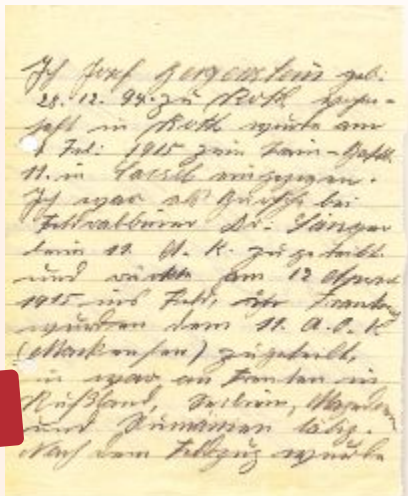 Ich Josef geb:
28.12.94 zu Roth wohn-
haft in Roth wurde am
1915 zum Train-Batl.
11. in Cassel eingezogen.
Ich war als Bursche bei
Feldrabbiner Dr: Sänger
beim 11. A. K. zugeteilt
und rückte am 12 April
1915 ins Feld,
wurden dem 11. A.O.K
(Mackensen) zugeteilt,
war an Fronten in
Rußland, Serbien,
und Rumänien tätig.
Nach dem Feldzug wurde